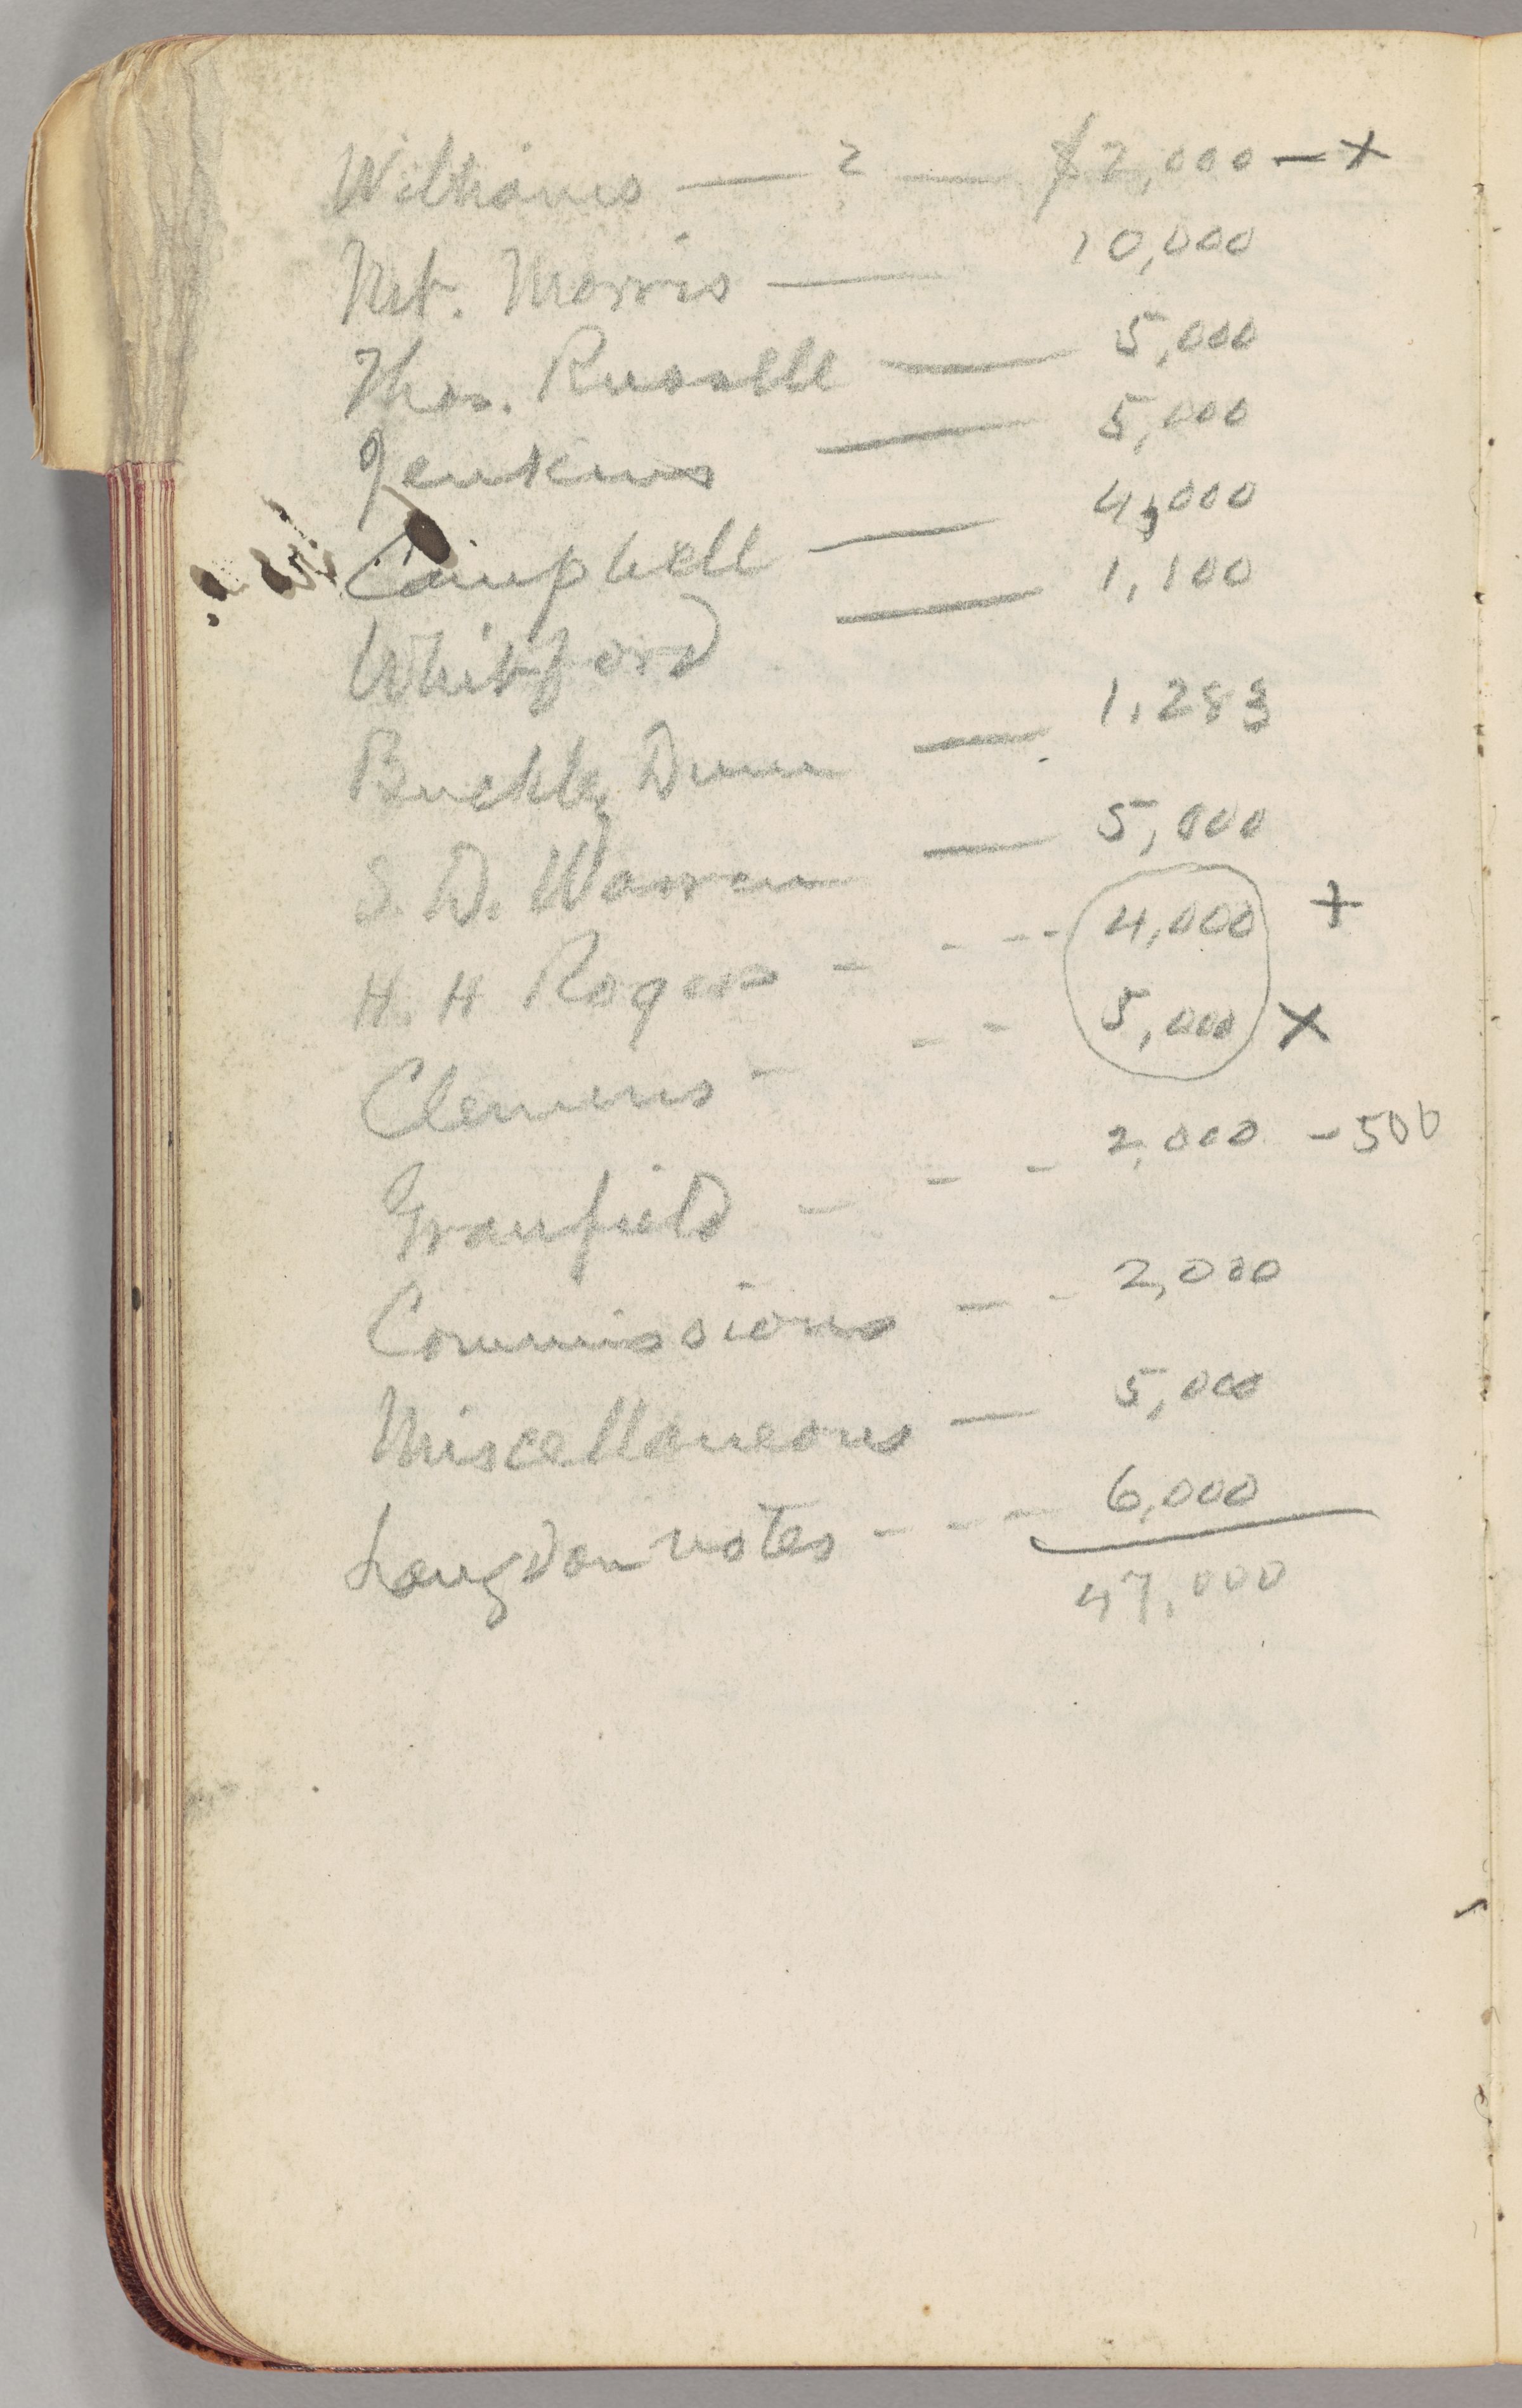 Williams — ? — $2,000 — x
Mt. Morris — 10,000
Thos. Russell — 5,000
Jenkins — 5,000
Campbell — 4,000
Whitford — 1,100
Buckle, Dunn — 1,283
S. D. Warren — 5,000
H. H Rogers - - - - 4,000 +
Clemens - - - 5,000 x
Granfield - - - 2,000 - 500
Commissions - - 2,000
Miscellaneous — 5,000
Langdon notes - - - 6,000
47,000